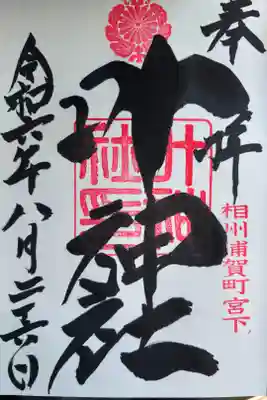 奉拝
相州浦賀町宮下
叶神社
令和六年八月二十六日